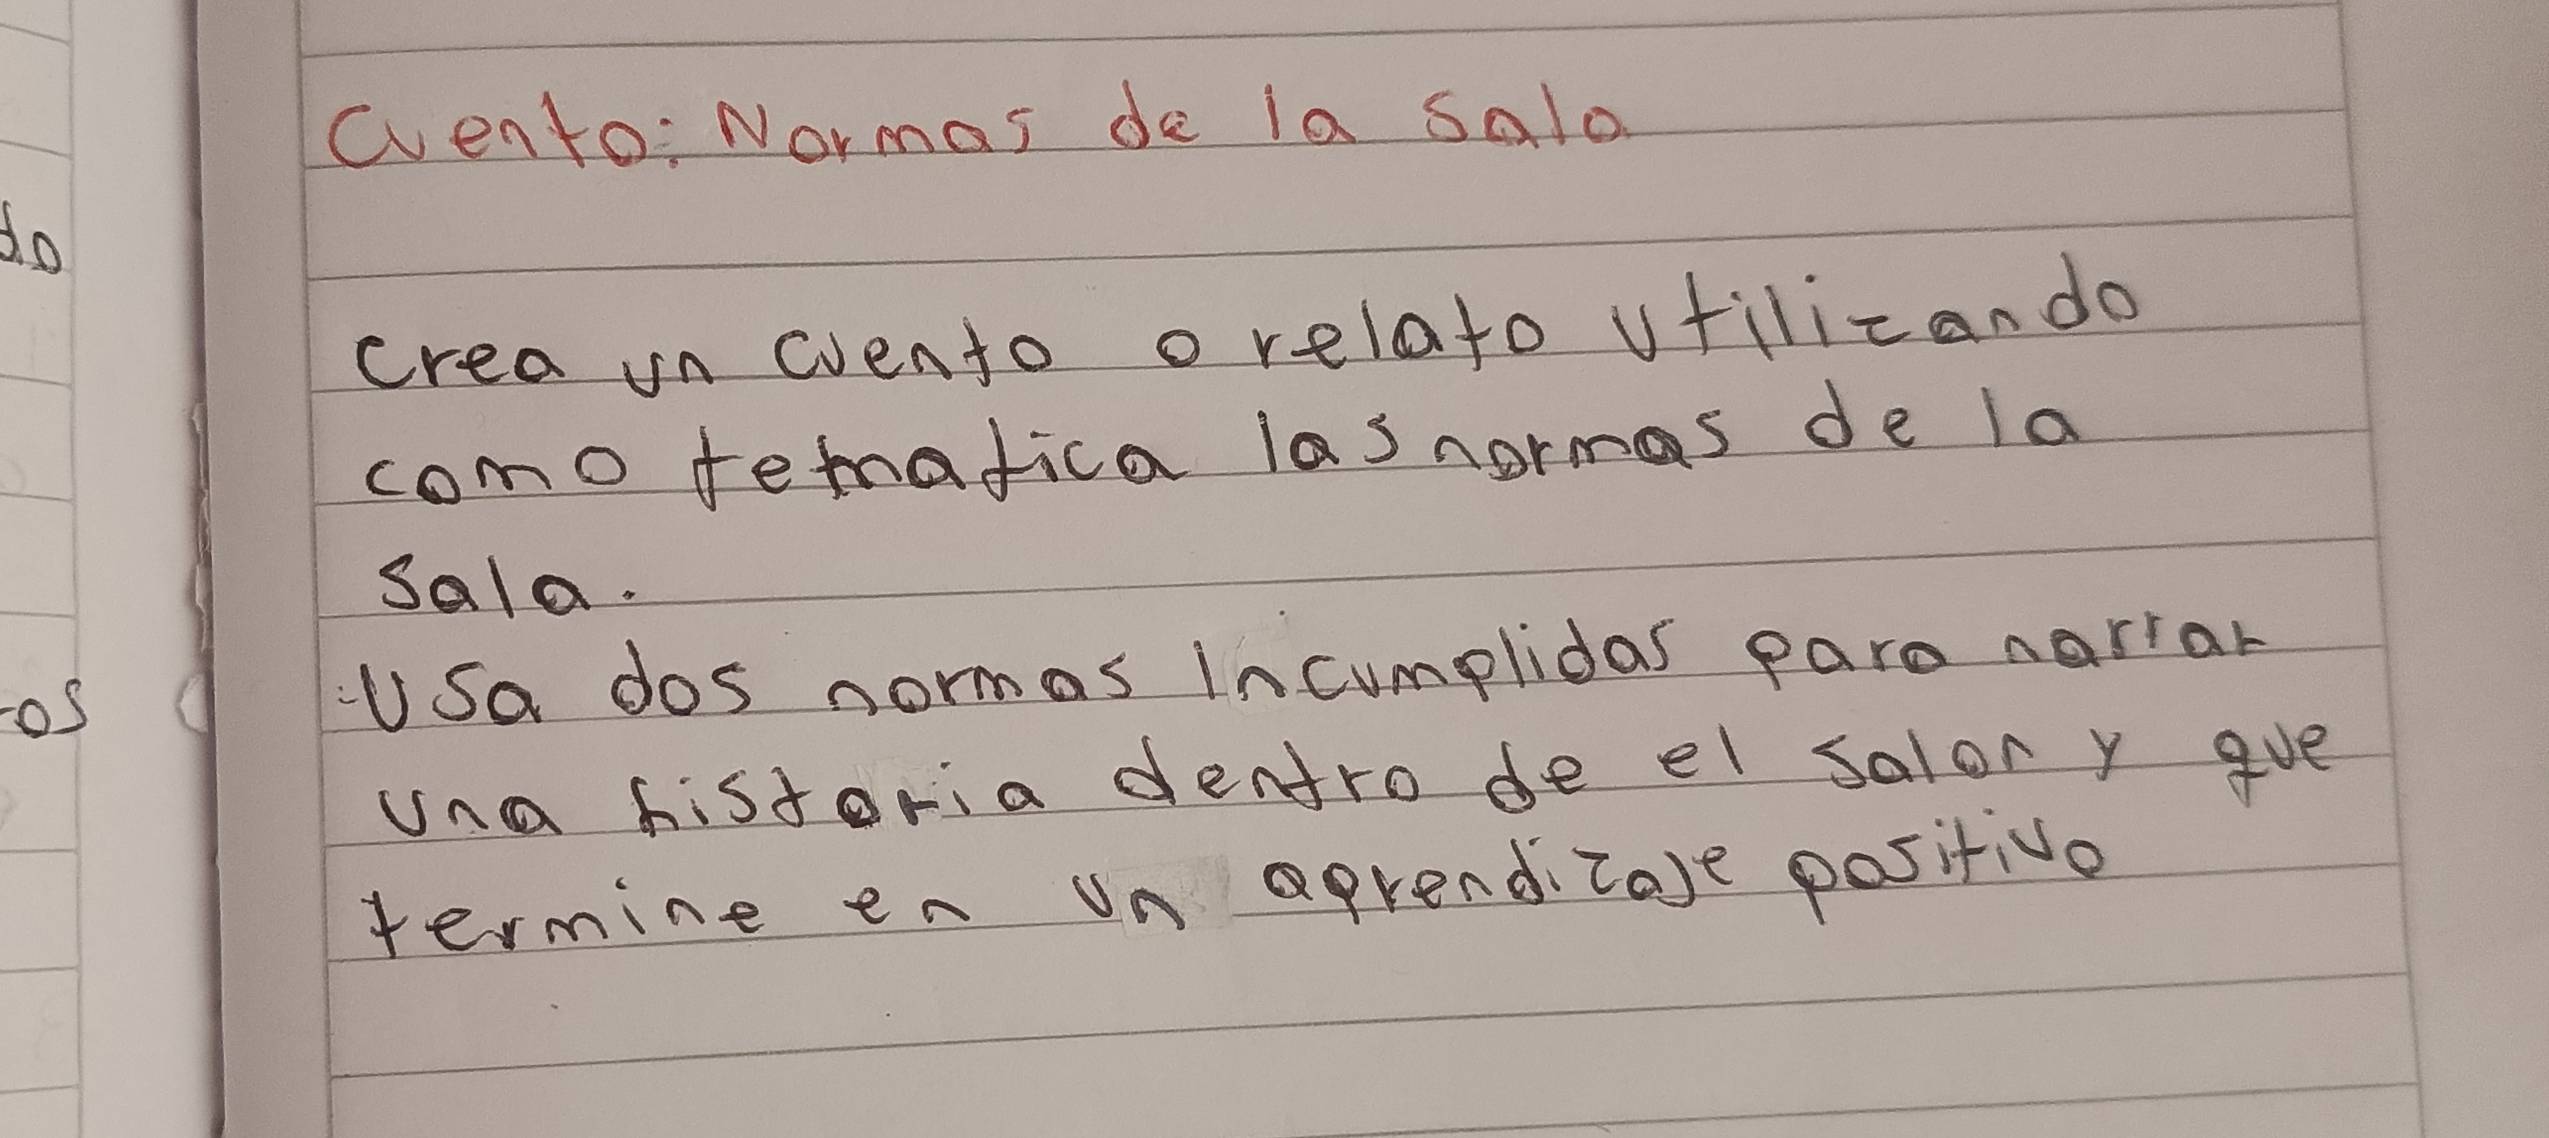 do
os
Cuento: Normas de la sala
Crea un cuento o relato utilizando
como tematica las normas de la
sala.
-Usa dos normas incumplidas para narrar
una historia dentro de el salon y que
termine en un aprendizaje positivo